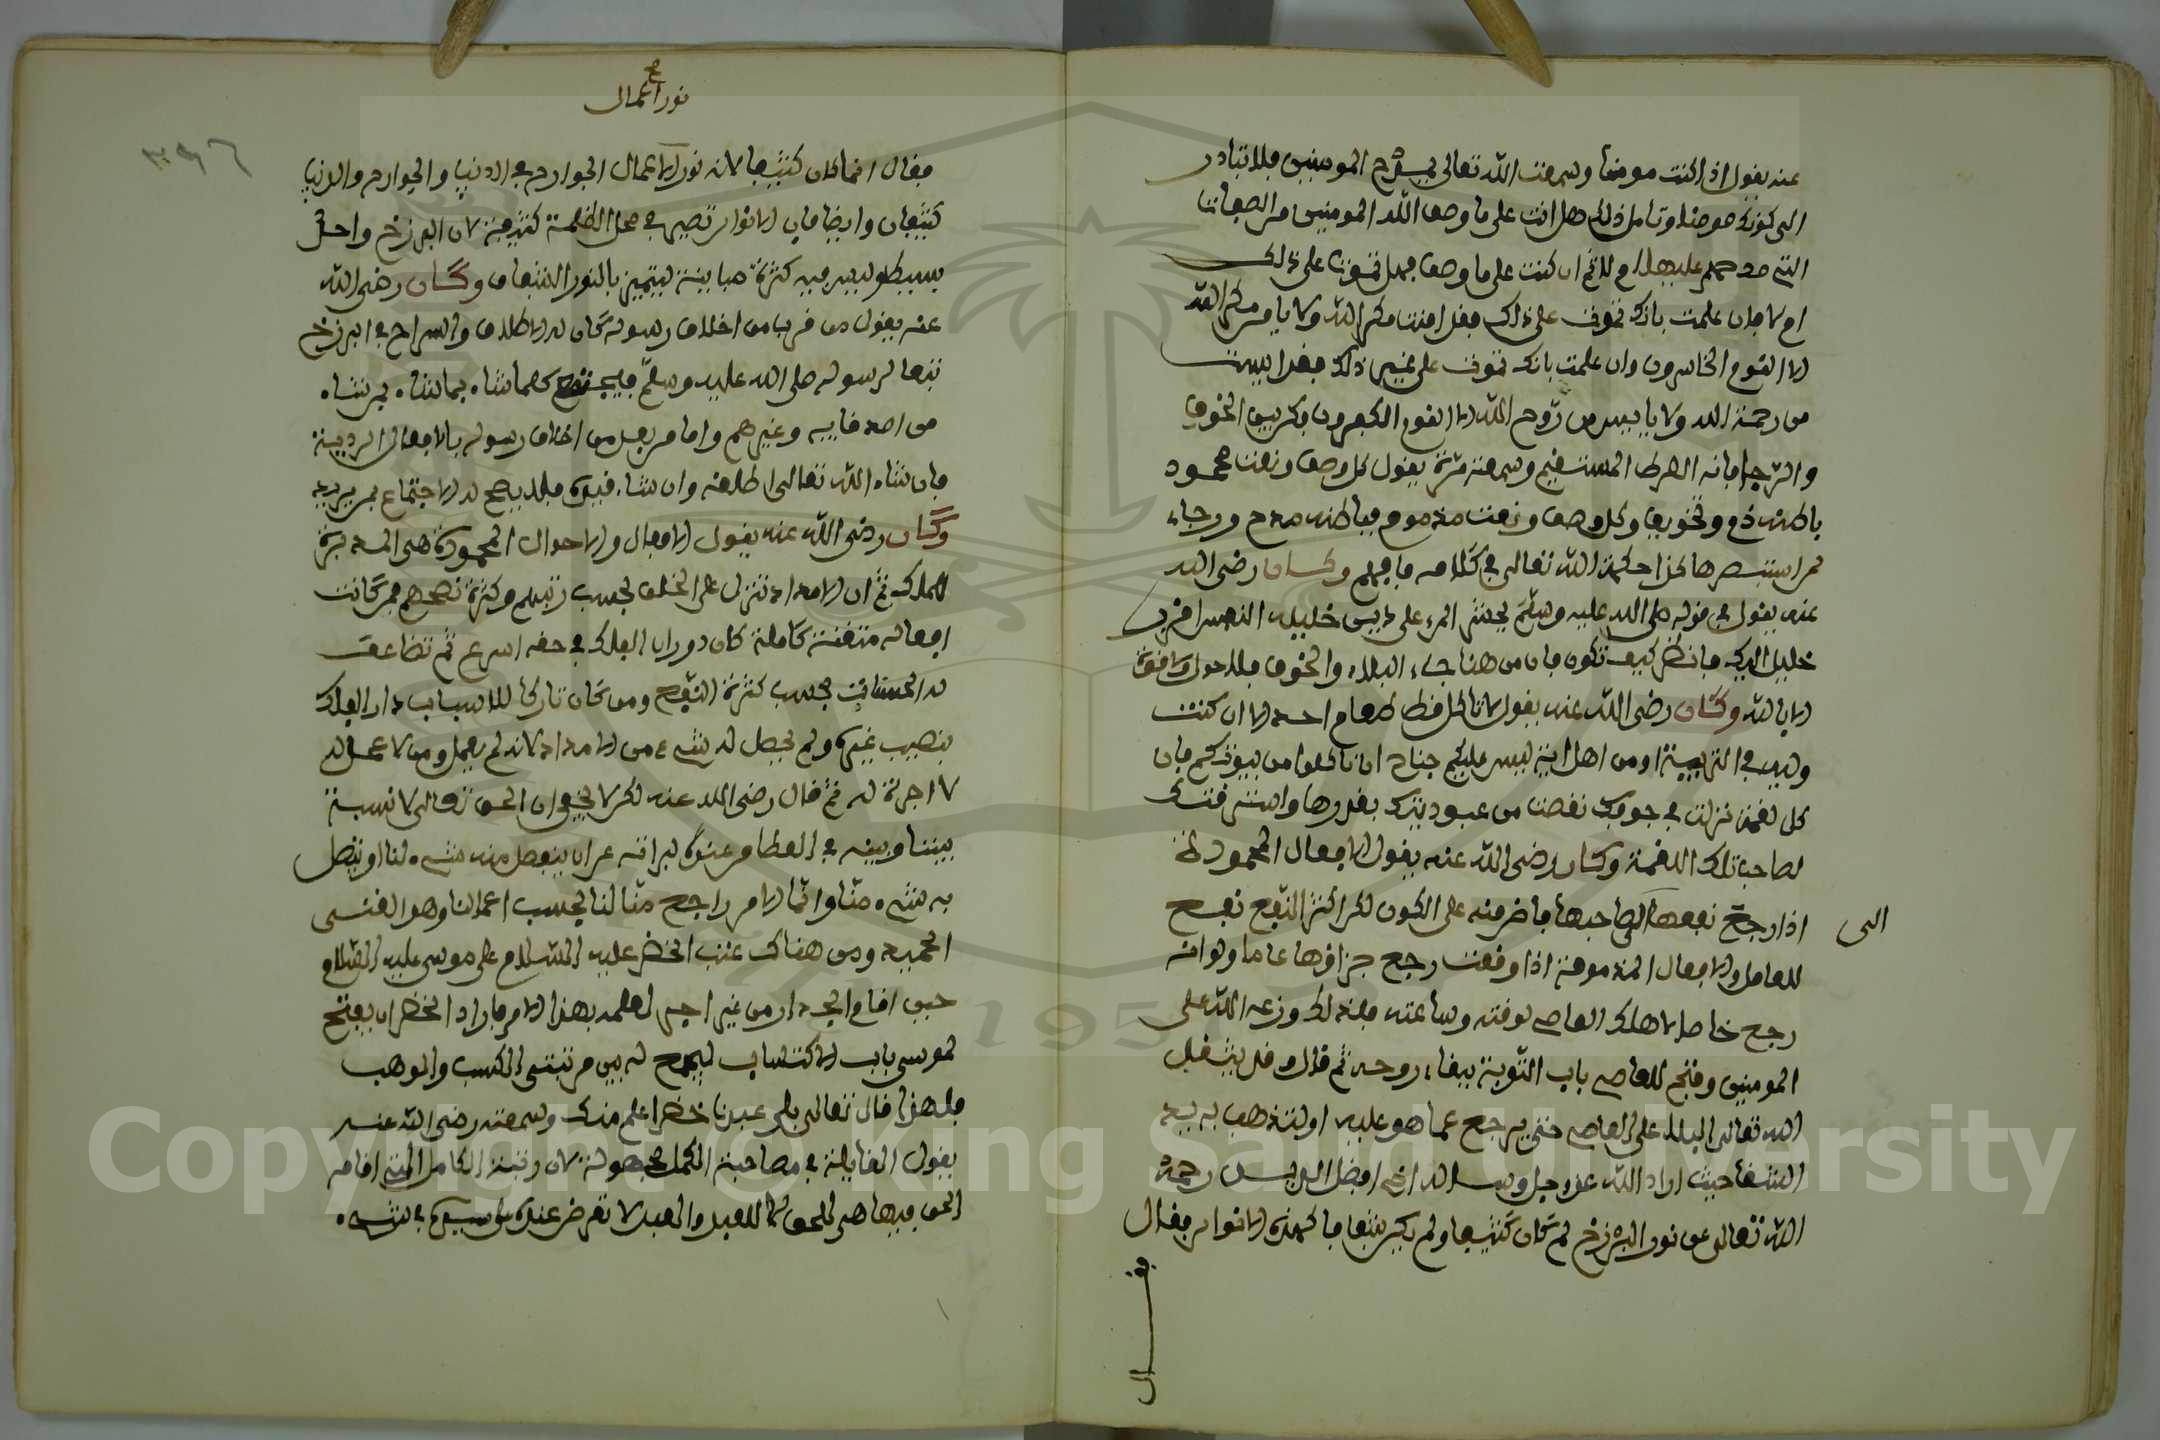 عنه يقول اذا كنت مومنا وسمعت الله تعالى يمدح المومنين فلا تبادر
الى كونك مومنا وتامل ذلك هل انت على ما وصف الله المومنين من الصفات
التي مدحهم عليها ام لا ثم ان كنت على ما وصف فهل تموت على ذلك
ام لا فان علمت بانك تموت على ذلك فقد امنت مكر الله ولا يامن مكر الله
الا القوم الخاسرون وان علمت بانك تموت على غير ذلك فقد ايست
من رحمة الله ولا ياييس من روح الله الا القوم الكفرون فكن بين الخوف
والترجا فانه الصراط المستقيم وسمعته مرة يقول كل وصف ونعت محمود
باطنه ذم وتخويف وكل وصف ونعت مذموم فباطنه مدح ورجاء
لمن استبصر هاكذا حكمة الله تعالى في كلامه فافهم وكان رضى الله
عنه يقول في قوله صلى الله عليه وسلم يحشر المرء على دين خليله النفس اقرب
خليل اليك فانظر كيف تكون فان من هنا جاء البلاء والخوف فلا حول ولا قوة
الا بالله وكان رضى الله عنه يقول لا تاكل قط طعام احد الا ان كنت
وليه في التربية او من اهل اية ليس عليكم جناح ان تاكلوا من بيوتكم فان
كل لقمة نزلت في جوفك نقصت من عبوديتك بقدرها واسترقتك
لصاحب تلك اللقمة وكان رضى الله عنه يقول الافعال المحمودة
اذا رجع نفعها الى صاحبها فاضر منه على الكون لكن اكثر النفع نفع
الى
للعامل والافعال المذمومة اذا وقعت رجع جزاؤها عاما ولو انه
رجع خاصا لاهلك العاصي لوقته وساعته فلذلك وزعه الله على
المومنين وفتح للعاصي باب التوبة ببقاء روحه ثم قال وقد يثقل
الله تعالى البلاء على العاصي حتى يرجع عما هو عليه او لتذهب به يد
الشقا حيث اراد الله عز وجل وساله اخي افضل الدين رحمه
الله تعالى عن نور البرزخ لم كان كثيفا ولم يكن شفافا كهذه الانوار فقال
فقال
نور اعمال
فقال انما كان كثيفا لانه نور الاعمال الجوارح في الدنيا والجوارح والدنيا
كثيفان وايضا فان الانوار تصير في محل الظلمة كثيفة لان البرزخ واحد
بسيط وليس فيه كثرة مباينة ليتميز بالنور الشفاف وكان رضى الله
عنه يقول من قرب من اخلاق رسوله كان له الاطلاق والسراح في البرزخ
تبعا لرسوله صلى الله عليه وسلم فيجتمع كيف ما شاء بما شاء بمن شاء
من اصدقايه وغيرهم واما من بعد من اخلاق رسوله بالافعال الردية
فان شاء الله تعالى اطلقه وان شاء قيده فلا يصح له الاجتماع بمن يريد
وكان رضى الله عنه يقول الافعال والاحوال المحمودة هي المدبرة
للفلك ثم ان الامداد تنزل على الخلق بحسب رتبهم وكثرة نفحهم فمن كانت
افعاله متقنة كاملة كان دوران الفلك في حقه اسرع ثم تضاعف
له الحسنات بحسب كثرة النفع ومن كان تاركا للاسباب دار الفلك
بنصيب غيره ولم يحصل له شيء من الامداد لانه لم يعمل ومن لا عمل له
لا اجرة له ثم قال رضى الله عنه لكن لا يخفى ان الحق تعالى لا نسبة
بيننا وبينه في العطا من عنده لبراءته عن ان ينفصل منه شيء لنا او يتصل
به شيء منا وانما الامر راجع منا لنا بحسب اعمالنا وهو الغنى
الحميد ومن هناك عتب الخضر عليه السلام على موسى عليه السلام
حين اقام الجدار من غير اجر لعلمه بهذا الامر فاراد الخضر ان يفتح
لموسى باب الاكتساب ليجمع له بين مرتبتى الكسب والوهب
فلهذا قال تعالى بلى عبدنا خضرا اعلم منك وسمعته رضى الله عنه
يقول الفايدة في مصاحبة الكمل مجهولة لان رتبة الكامل التي اقامه
الحق فيها هي للحق لا للعبد والعبد لا تعرض عنده على سيده في شيء